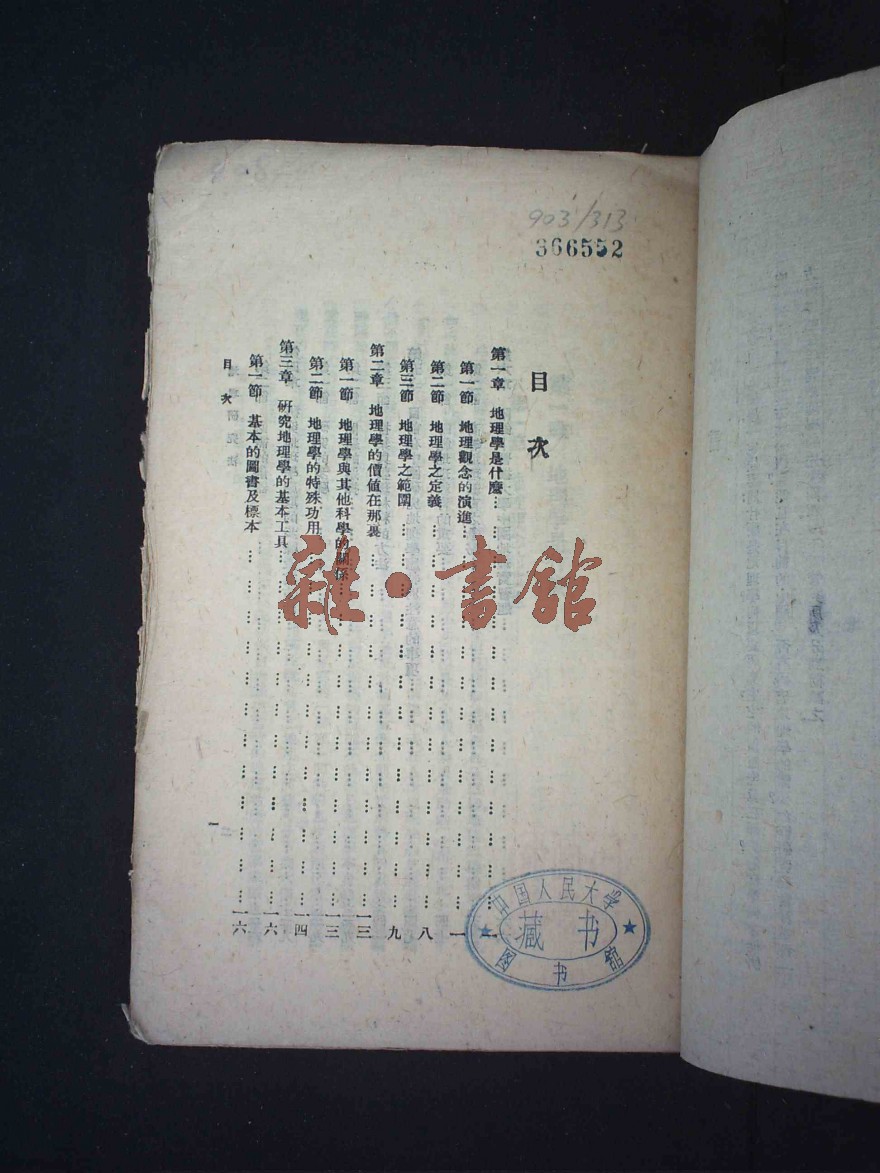 903/313
366552
目次
第一章 地理學是什麼…………一
第一節 地理觀念的演進…………一
第二節 地理學之定義…………八
第三節 地理學之範圍…………九
第二章 地理學的價値在那裏…………一三
第一節 地理學與其他科學的關係…………一三
第二節 地理學的特殊功用…………一四
第三章 硏究地理學的基本工具…………一六
第一節 基本的圖書及標本…………一六
目次
一
雜·書館
中国人民大学
藏书
图书馆